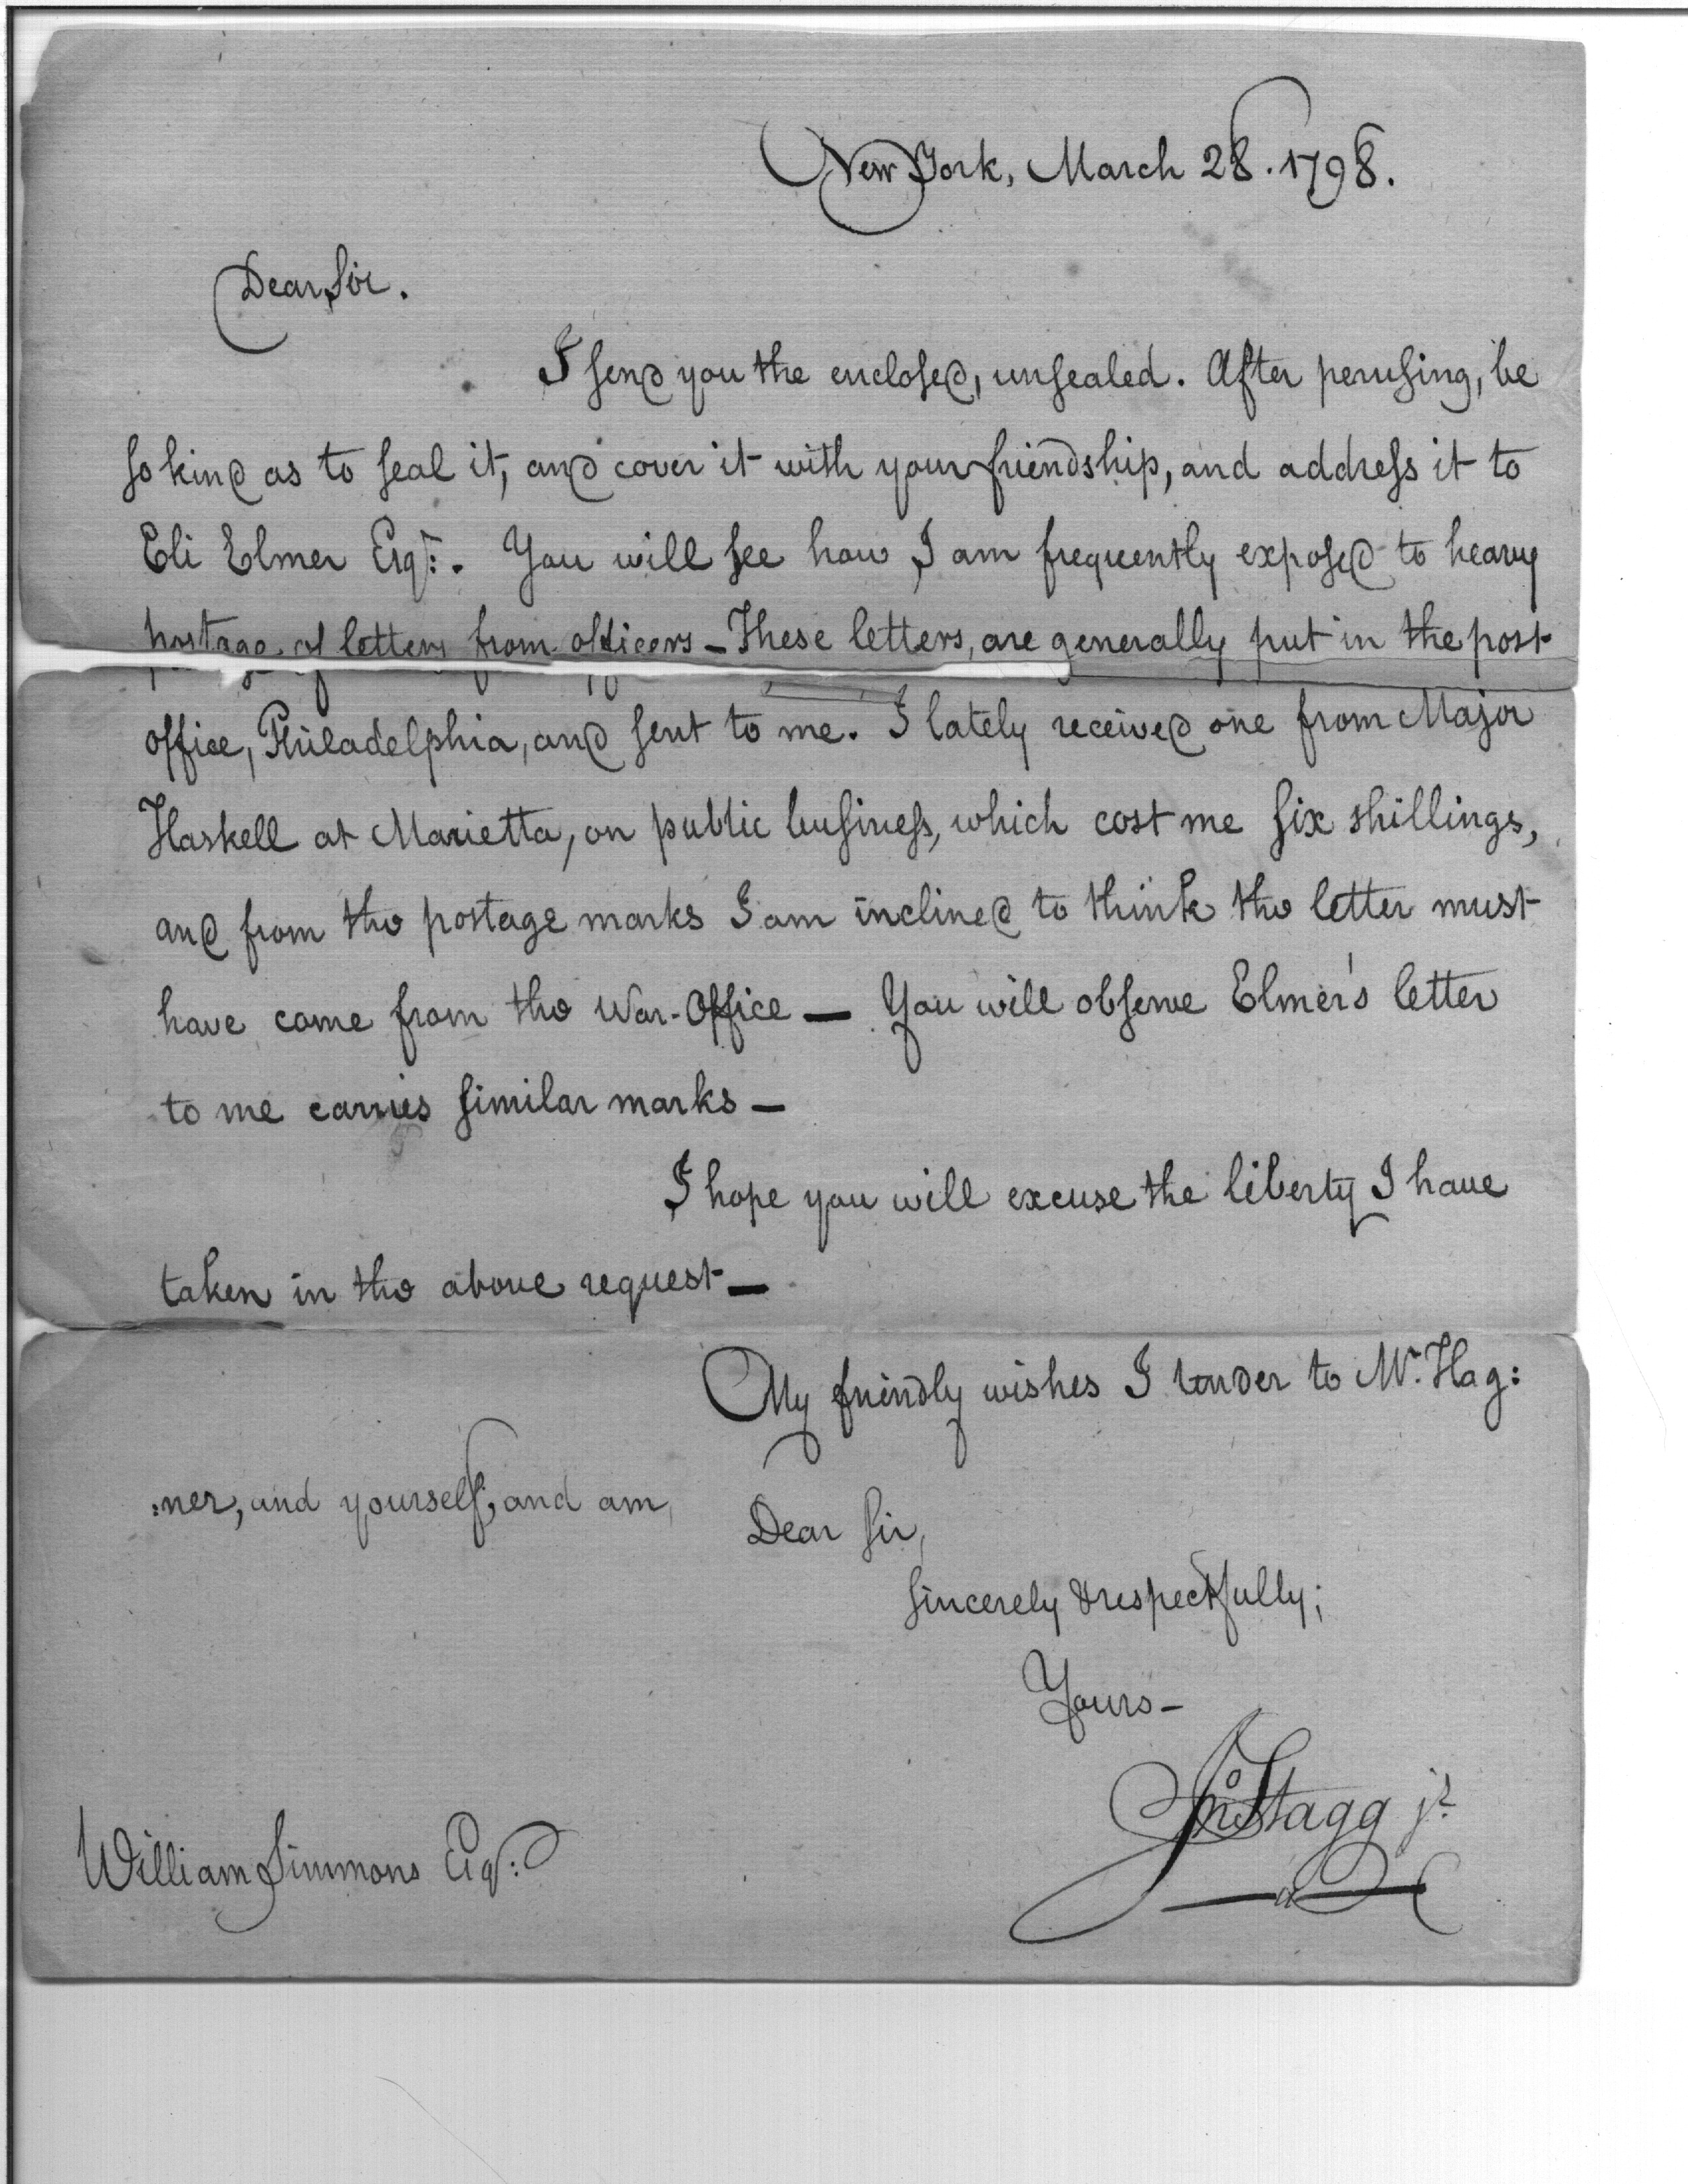 New York, March 28. 1798.
Dear Sir.
I send you the enclosed, unsealed. After perusing, be
so kind as to seal it, and cover it with your friendship, and address it to
Eli Elmer Esqr:. You will see how I am frequently exposed to heavy
postage of letters from officers — These letters, are generally put in the post
office, Philadelphia, and sent to me. I lately received one from Major
Haskell at Marietta, on public business, which cost me six shillings,
and from the postage marks I am inclined to think the letter must
have come from the War-Office — You will observe Elmer's letter
to me carries similar marks —
I hope you will excuse the liberty I have
taken in the above request —
My friendly wishes I tender to Mr. Hag:
:ner, and yourself, and am,
Dear Sir,
Sincerely & respectfully;
Yours —
Jno Stagg jr.
William Simmons Esqr: